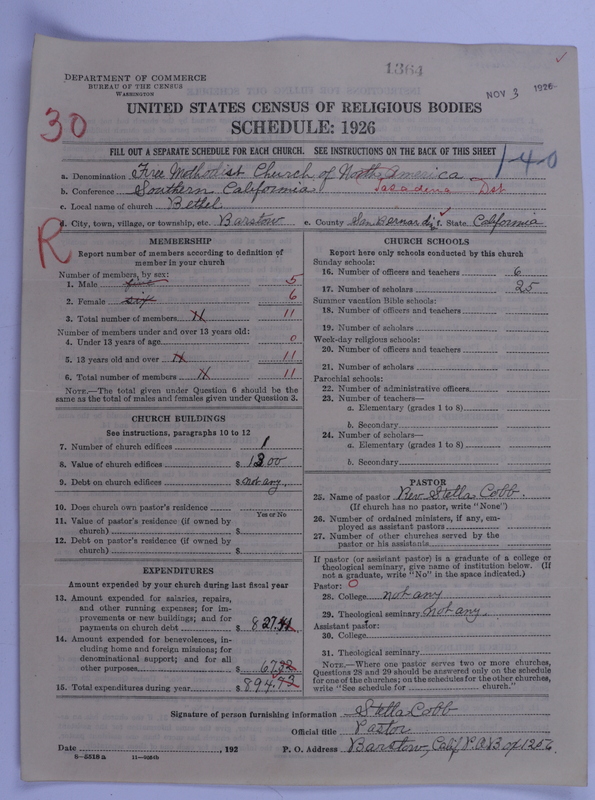 1364
NOV 3 1926
DEPARTMENT OF COMMERCE
BUREAU OF THE CENSUS
WASHINGTON
30
UNITED STATES CENSUS OF RELIGIOUS BODIES
SCHEDULE: 1926
FILL OUT A SEPARATE SCHEDULE FOR EACH CHURCH. SEE INSTRUCTIONS ON THE BACK OF THIS SHEET
1-4-0
a. Denomination Free Methodist Church of North America
b. Conference Southern California Pasadena Dst
c. Local name of church Bethel
d. City, town, village, or township, etc. Barstow e. County San Bernardi f. State California
R
MEMBERSHIP
Report number of members according to definition of
member in your church
Number of members, by sex:
1. Male five 5
2. Female six 6
3. Total number of members 11
Number of members under and over 13 years old:
4. Under 13 years of age 0
5. 13 years old and over 11
6. Total number of members 11
NOTE.—The total given under Question 6 should be the
same as the total of males and females given under Question 3.
CHURCH BUILDINGS
See instructions, paragraphs 10 to 12
7. Number of church edifices 1
8. Value of church edifices $
9. Debt on church edifices $ not any.
10. Does church own pastor's residence
Yes or No
11. Value of pastor's residence (if owned by
church) $
12. Debt on pastor's residence (if owned by
church) $
EXPENDITURES
Amount expended by your church during last fiscal year
13. Amount expended for salaries, repairs,
and other running expenses; for im-
provements or new buildings; and for
payments on church debt $ 827.
14. Amount expended for benevolences, in-
cluding home and foreign missions; for
denominational support; and for all
other purposes $ 67.
15. Total expenditures during year $ 894.
CHURCH SCHOOLS
Report here only schools conducted by this church
Sunday schools:
16. Number of officers and teachers 6
17. Number of scholars 25
Summer vacation Bible schools:
18. Number of officers and teachers
19. Number of scholars
Week-day religious schools:
20. Number of officers and teachers
21. Number of scholars
Parochial schools:
22. Number of administrative officers
23. Number of teachers—
a. Elementary (grades 1 to 8)
b. Secondary
24. Number of scholars—
a. Elementary (grades 1 to 8)
b. Secondary
PASTOR
25. Name of pastor Rev Stella Cobb.
(If church has no pastor, write "None")
26. Number of ordained ministers, if any, em-
ployed as assistant pastors
27. Number of other churches served by the
pastor or his assistants
If pastor (or assistant pastor) is a graduate of a college or
theological seminary, give name of institution below. (If
not a graduate, write "No" in the space indicated.)
Pastor: 0
28. College not any
29. Theological seminary not any.
Assistant pastor:
30. College
31. Theological seminary
NOTE.—Where one pastor serves two or more churches,
Questions 28 and 29 should be answered only on the schedule
for one of the churches; on the schedules for the other churches,
write "See schedule for church."
Signature of person furnishing information Stella Cobb
Official title Pastor
Date , 192 P. O. Address Barstow, Calif P.O.
8-5518 a